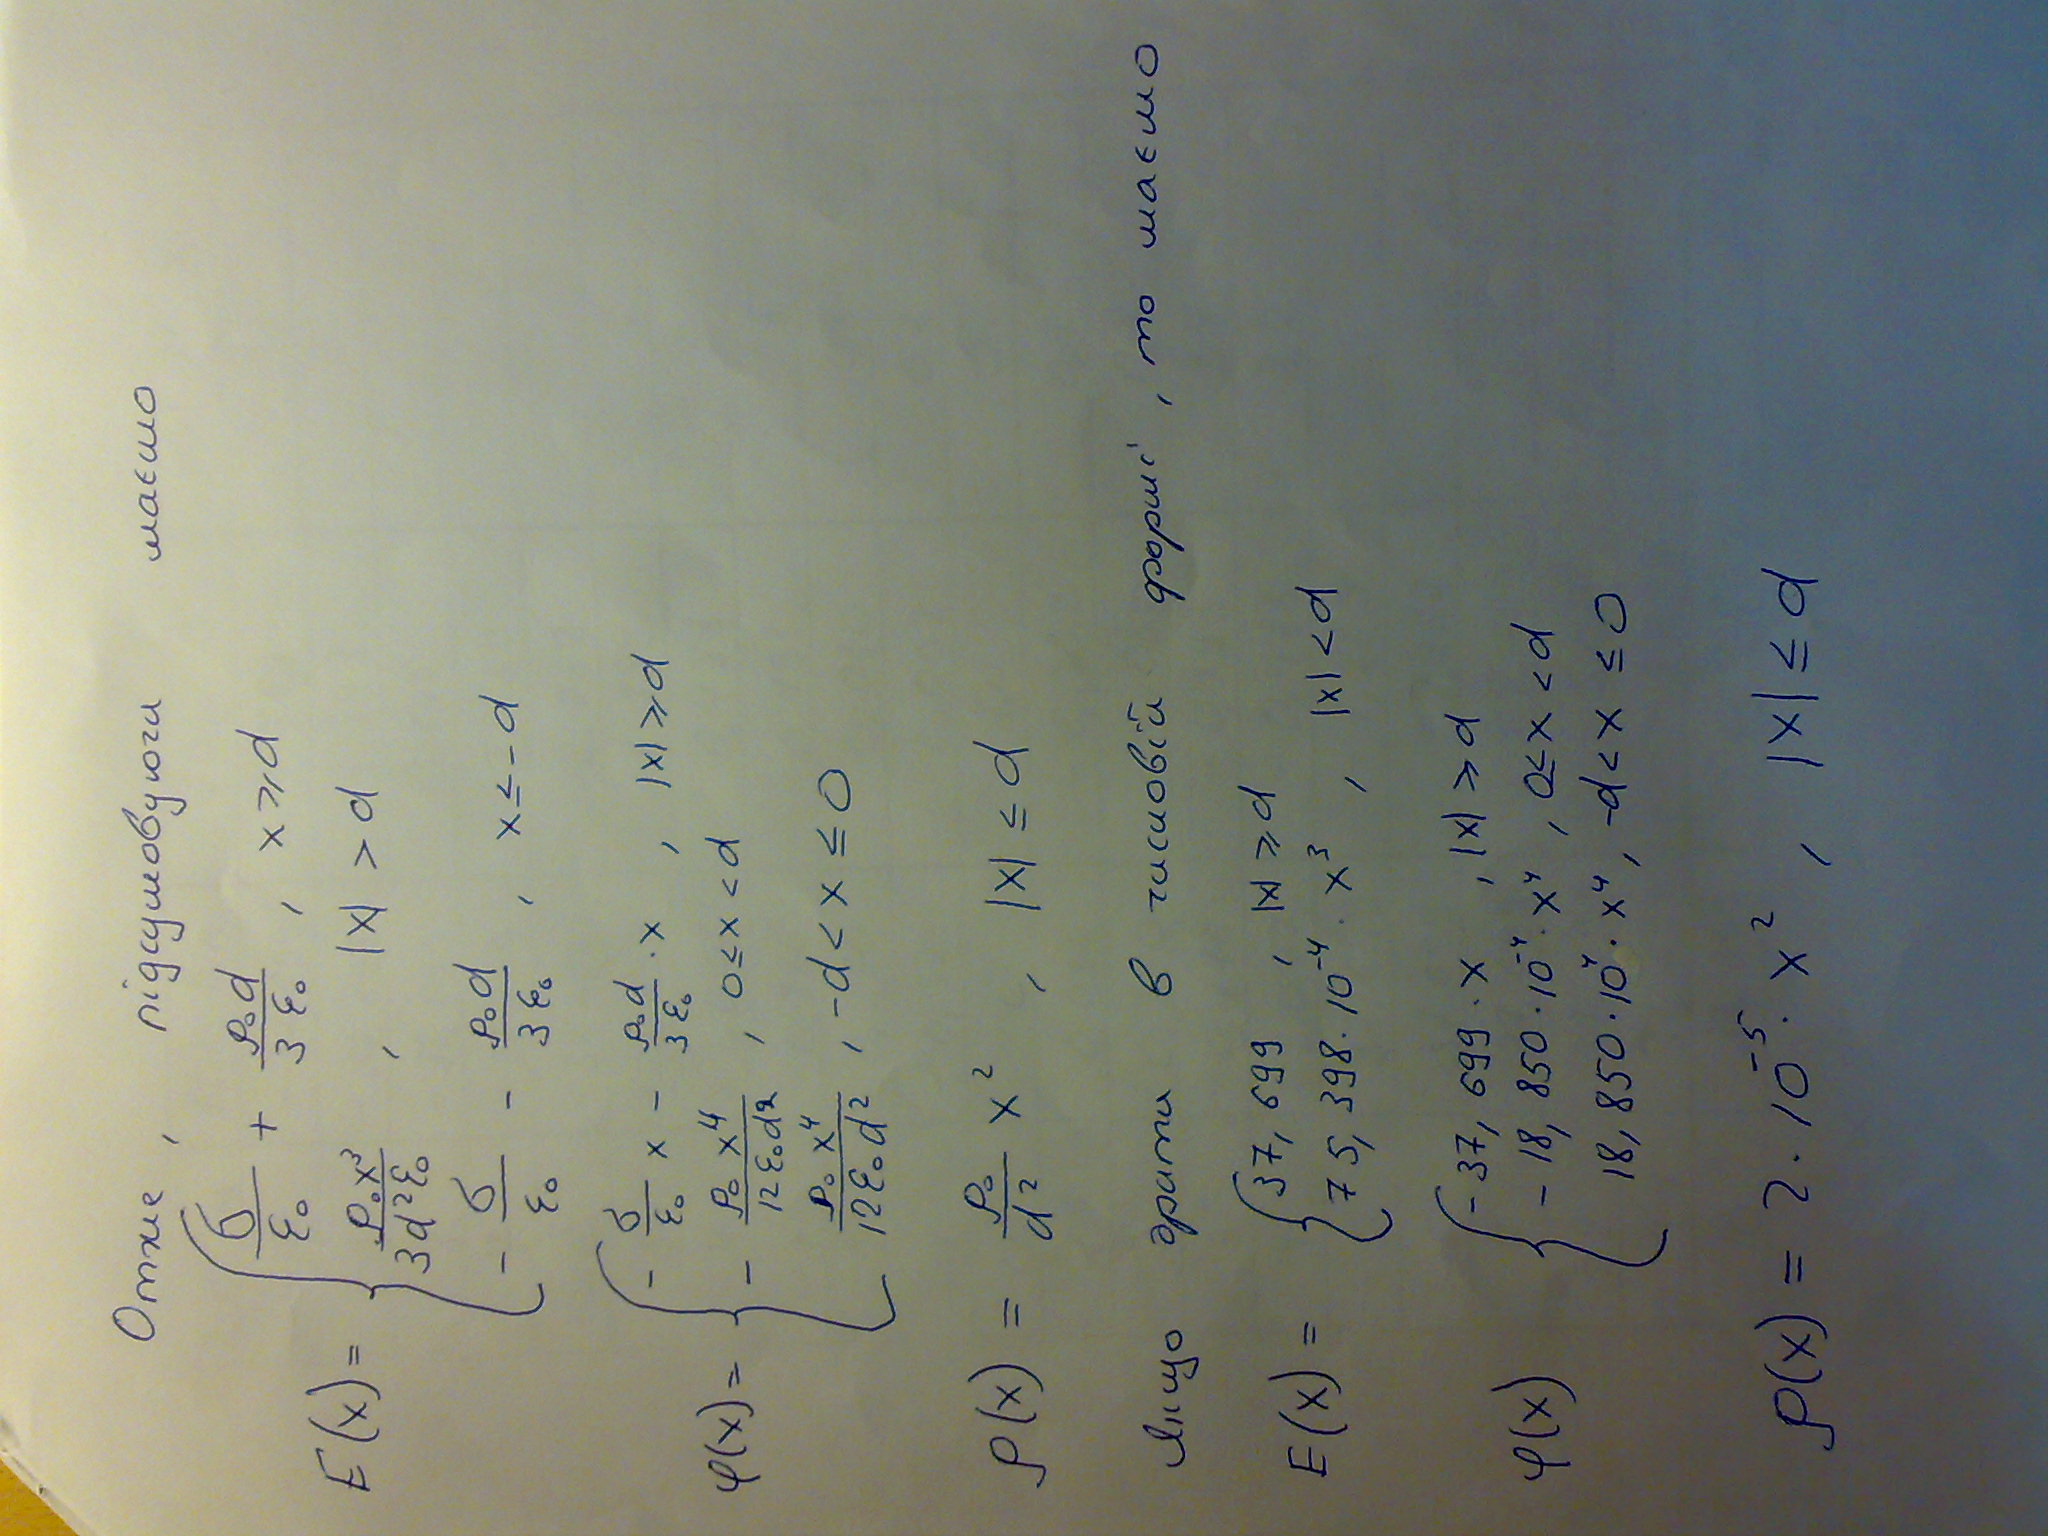 Отже, підсумовуючи маємо
E(x) = { σ/ε₀ + ρ₀d/3ε₀ , x ≥ d
ρ₀x³/3d²ε₀ , |x| > d
- σ/ε₀ - ρ₀d/3ε₀ , x ≤ -d
φ(x) = { - σ/ε₀ x - ρ₀d/3ε₀ · x , |x| ≥ d
- ρ₀x⁴/12ε₀d² , 0 ≤ x < d
ρ₀x⁴/12ε₀d² , -d < x ≤ 0
ρ(x) = ρ₀/d² x² , |x| ≤ d
Якщо брати в числовій формі, то маємо
E(x) = { 37,699 , |x| ≥ d
75,398 · 10⁻⁴ · x³ , |x| < d
φ(x) { - 37,699 · x , |x| ≥ d
- 18,850 · 10⁻⁴ · x⁴ , 0 ≤ x < d
18,850 · 10⁻⁴ · x⁴ , -d < x ≤ 0
ρ(x) = 2 · 10⁻⁵ · x² , |x| ≤ d